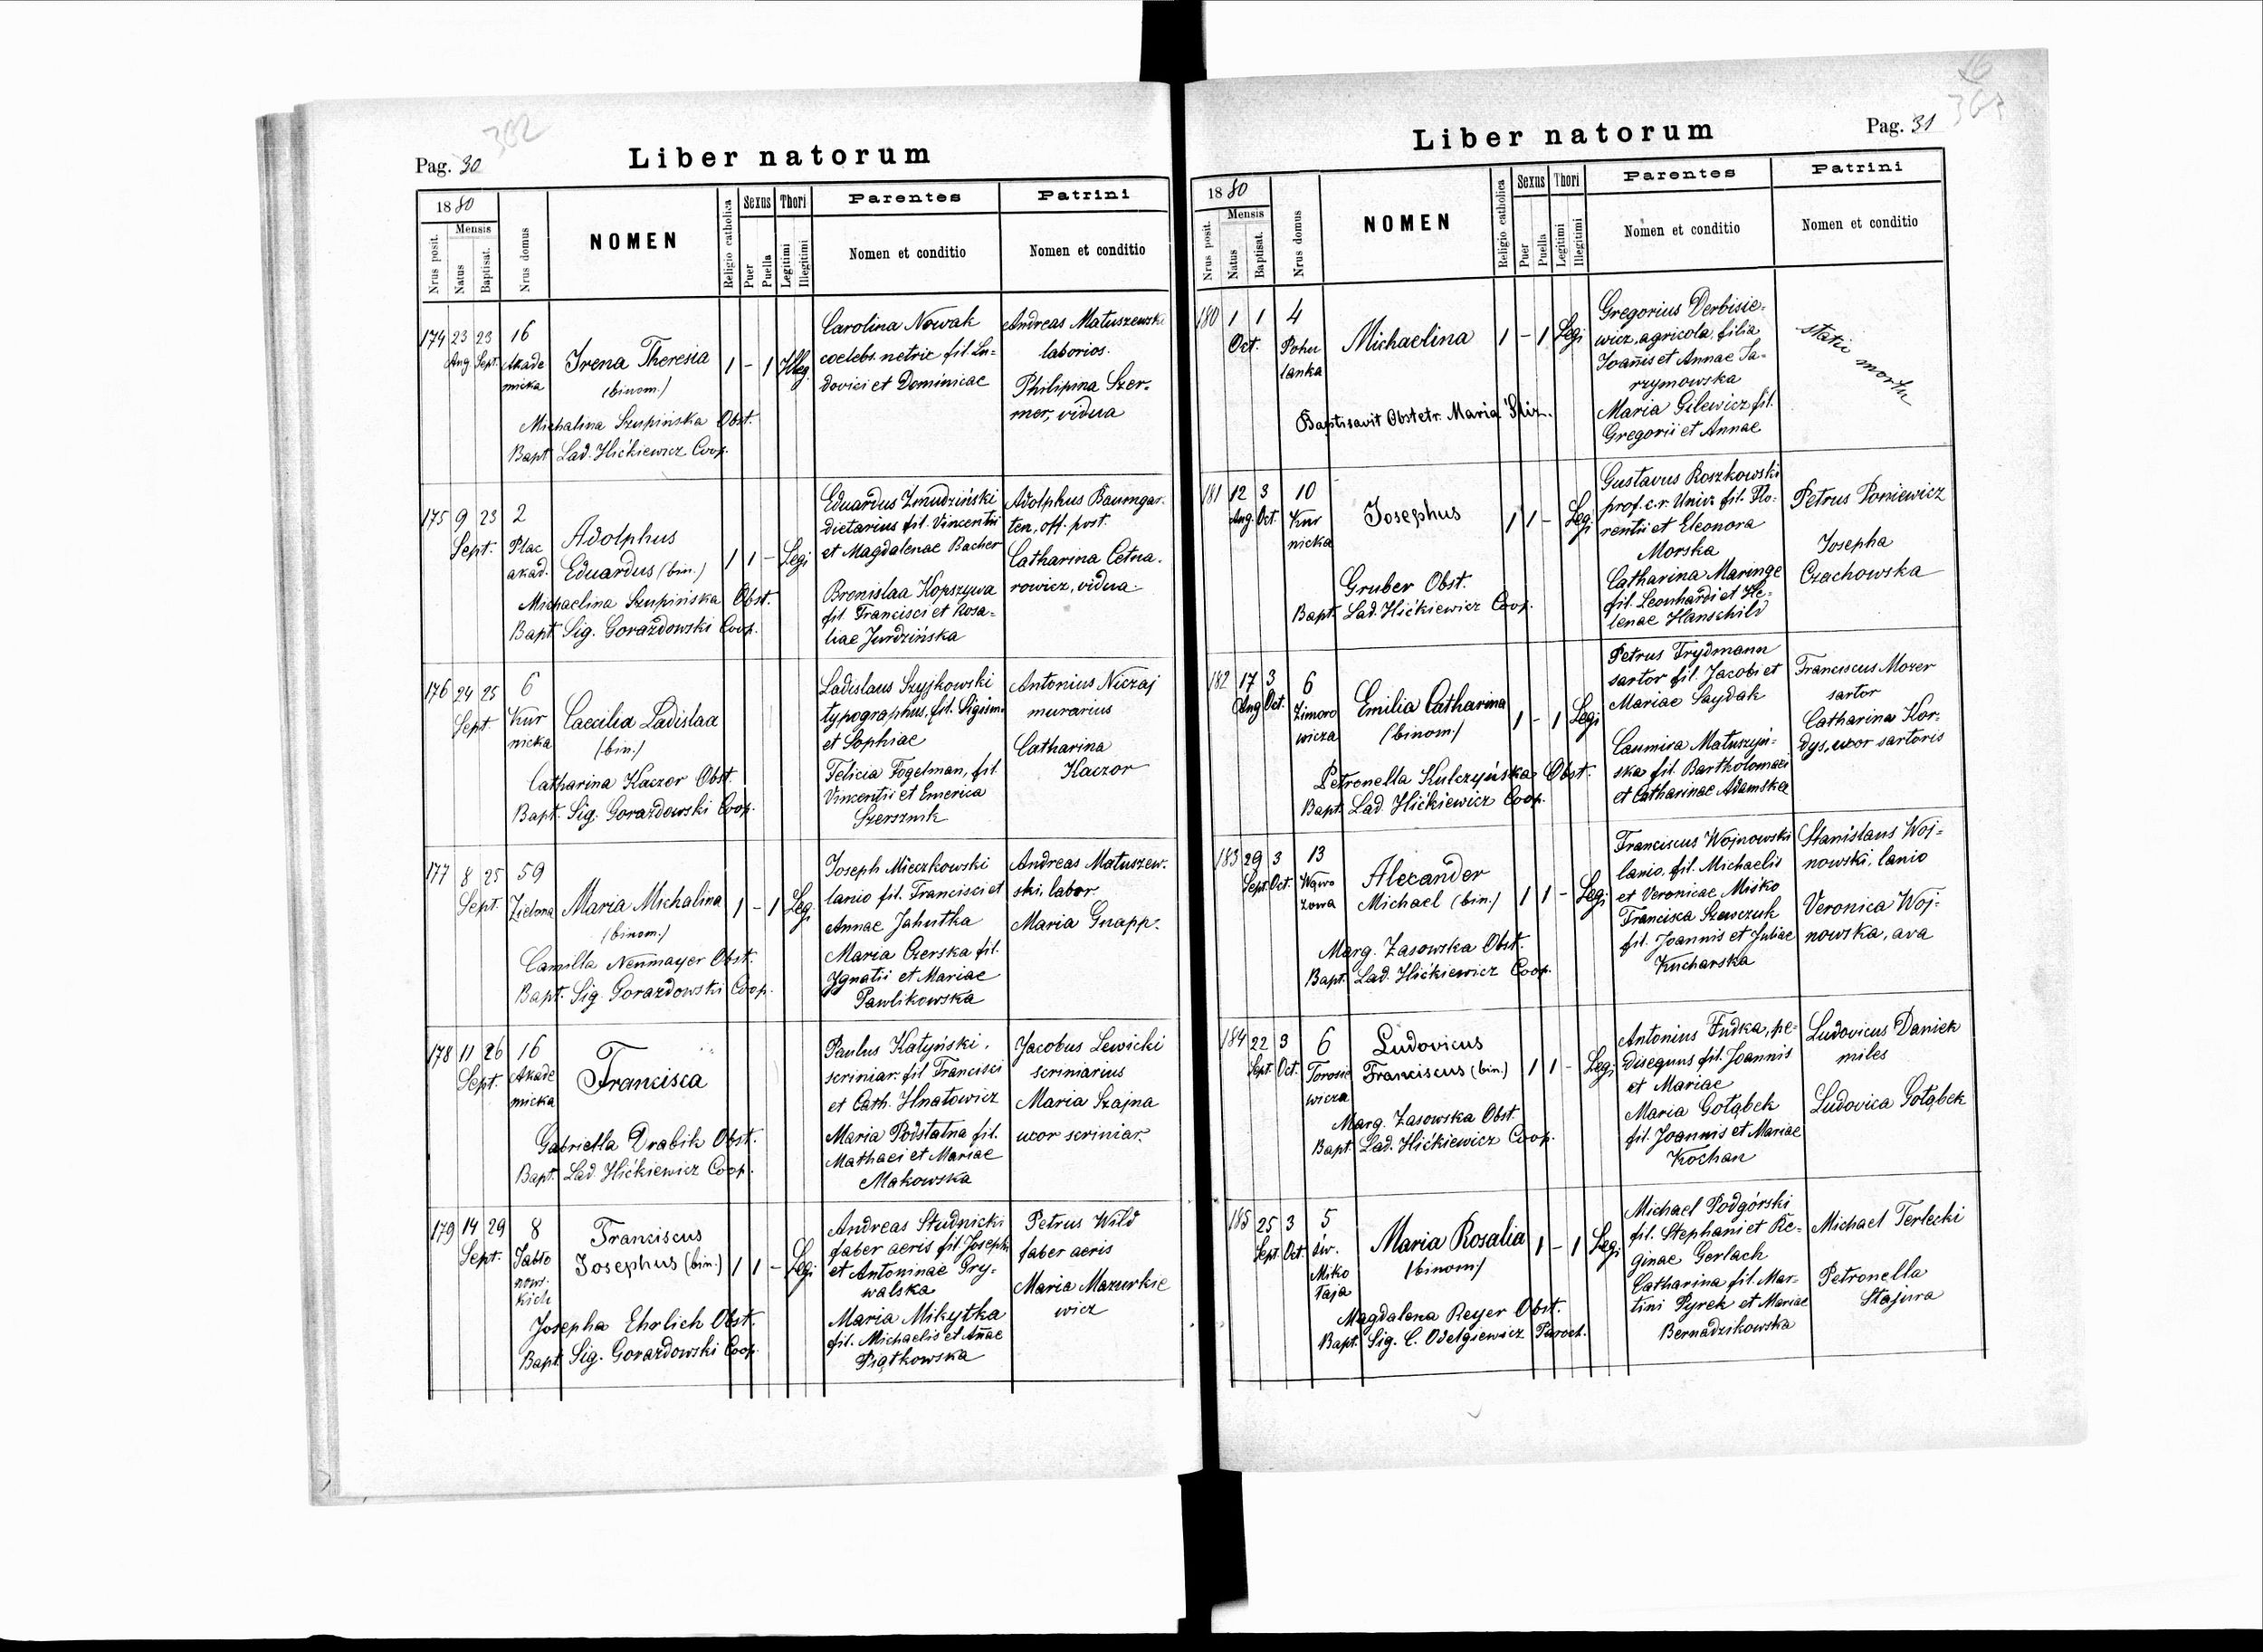 302
Pag. 30
Liber natorum
1880
Nrus posit.
Mensis
Natus
Baptisat.
Nrus domus
NOMEN
Religio catholica
Sexus
Puer
Puella
Thori
Legitimi
Illegitimi
Parentes
Nomen et conditio
Patrini
Nomen et conditio
174 23 Aug. 23 Sept. 16 Akade
micka
Irena Theresia
(binom.)
1 - 1 Illeg.
Michalina Szupińska Obst.
Bapt. Lad. Hićkiewicz Coop.
Carolina Nowak
coelebs. netric fil. Lu-
dovici et Dominicae
Andreas Matuszewski
laborios.
Philipina Szer-
mer, vidua
175 9 23 Sept. 2
Plac
akad.
Adolphus
Eduardus (bin.)
1 1 - Legi
Michaelina Szupińska Obst.
Bapt. Sig. Gorazdowski Coop.
Eduardus Żmudziński
dietarius fil. Vincentii
et Magdalenae Bacher
Bronislaa Kopszywa
fil. Francisci et Rosa-
liae Jurdzińska
Adolphus Baumgar-
ten, off. post.
Catharina Cetna-
rowicz, vidua
176 24 25 Sept. 6
Kur
nicka
Caecilia Ladislaa
(bin.)
Catharina Kaczor Obst.
Bapt. Sig. Gorazdowski Coop.
Ladislaus Szyjkowski
typographus, fil. Sigism.
et Sophiae
Felicia Fogelman, fil.
Vincentii et Emerica
Szersznik
Antonius Niczaj
murarius
Catharina
Kaczor
177 8 25 Sept. 59
Zielona
Maria Michalina
(binom.)
1 - 1 Legi
Camilla Neumayer Obst.
Bapt. Sig. Gorazdowski Coop.
Joseph Mieczkowski
lanio fil. Francisci et
Annae Jahutka
Maria Czerska fil.
Ygnatii et Mariae
Pawlikowska
Andreas Matuszew-
ski, labor.
Maria Gnapp.
178 11 26 Sept. 16
Akade
micka
Francisca
Gabriella Drabik Obst.
Bapt. Lad. Hićkiewicz Coop.
Paulus Katyński,
scriniar. fil. Francisci
et Cath. Hnatowicz
Maria Podstatna fil.
Mathaei et Mariae
Makowska
Jacobus Lewicki
scriniarius
Maria Szajna
uxor scriniar.
179 14 29 Sept. 8
Jabło
nows-
kich
Franciscus
Josephus (bin.)
1 1 - Legi
Josepha Ehrlich Obst.
Bapt. Sig. Gorazdowski Coop.
Andreas Studnicki
faber aeris fil. Josephi
et Antoninae Gry-
walska
Maria Mikytka
fil. Michaelis et Añae
Piątkowska
Petrus Wild
faber aeris
Maria Mazurkie
wicz
Liber natorum
Pag. 31
1880
Nrus posit.
Mensis
Natus
Baptisat.
Nrus domus
NOMEN
Religio catholica
Sexus
Puer
Puella
Thori
Legitimi
Illegitimi
Parentes
Nomen et conditio
Patrini
Nomen et conditio
180 1 1 Oct. 4
Pohu
lanka
Michaelina
1 - 1 Legi
Baptisavit Obstetr. Maria Śliz.
Gregorius Derbisie-
wicz, agricola, filia
Joañis et Annae Ja-
rzymowska
Maria Gilewicz fil.
Gregorii et Annae
statii mortu
181 12 Aug. 3 Oct. 10
Kur
nicka
Josephus
1 1 - Legi
Gruber Obst.
Bapt. Lad. Hićkiewicz Coop.
Gustavus Roszkowski
prof. c.r. Univ. fil. Flo-
rentii et Eleonora
Morska
Catharina Maringe
fil. Leonhardi et He-
lenae Hanschild
Petrus Poniewicz
Josepha
Czachowska
182 17 Aug. 3 Oct. 6
Zimoro
wicza
Emilia Catharina
(binom.)
1 - 1 Legi
Petronella Kulczyńska Obst.
Bapt. Lad. Hićkiewicz Coop.
Petrus Frydmann
sartor fil. Jacobi et
Mariae Saydak
Casimira Matuszyń-
ska fil. Bartholomaei
et Catharinae Adamska
Franciscus Mozer
sartor
Catharina Kor-
dys, uxor sartoris
183 29 Sept. 3 Oct. 13
Wąwo
zowa
Alexander
Michael (bin.)
1 1 - Legi
Marg. Zasowska Obst.
Bapt. Lad. Hićkiewicz Coop.
Franciscus Wojnowski
lanio, fil. Michaelis
et Veronicae Miśko
Francisca Szewczuk
fil. Joannis et Juliae
Kucharska
Stanislaus Woj-
nowski, lanio
Veronica Woj-
nowska, ava
184 22 Sept. 3 Oct. 6
Torosie
wicza
Ludovicus
Franciscus (bin.)
1 1 - Legi
Marg. Zasowska Obst.
Bapt. Lad. Hićkiewicz Coop.
Antonius Fudka, pe-
disequus fil. Joannis
et Mariae
Maria Gołąbek
fil. Joannis et Mariae
Kochan
Ludovicus Daniek
miles
Ludovica Gołąbek
185 25 Sept. 3 Oct. 5
św.
Miko
łaja
Maria Rosalia
(binom.)
1 - 1 Legi
Magdalena Reyer Obst.
Bapt. Sig. C. Odelgiewicz Paroch.
Michael Podgórski
fil. Stephani et Re-
ginae Gerlach
Catharina fil. Mar-
tini Pyrek et Mariae
Bernadzikowska
Michael Terlecki
Petronella
Stajura